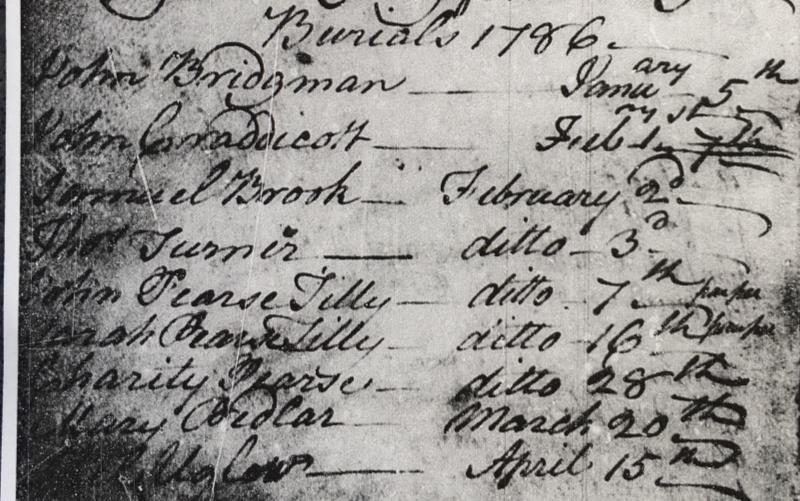 Burials 1786.
John Bridgman — January 5th
John Craddicott — Feb ry 1st 7th
Samuel Brook — February 2d
Thos Turner — ditto 3d
John Pearse Tilly — ditto 7th pauper
Sarah Pearse Tilly — ditto 16th pauper
Charity Pearse — ditto 28th
Mary Bedlar — March 20th
Uglow — April 15th